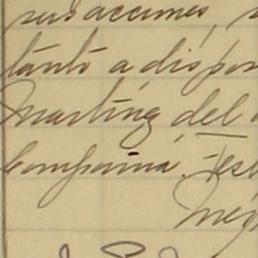 sus acciones,
tanto a dispo
Martínez, del
Compañía. Tes
Méx